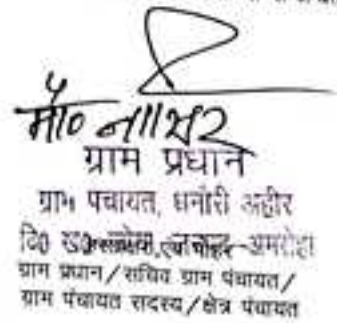 मो० नाासर
ग्राम प्रधान
ग्राम पंचायत, धनौरी अहीर
वि० ख० अमरोहा
ग्राम प्रधान/सचिव ग्राम पंचायत/
ग्राम पंचायत सदस्य/क्षेत्र पंचायत